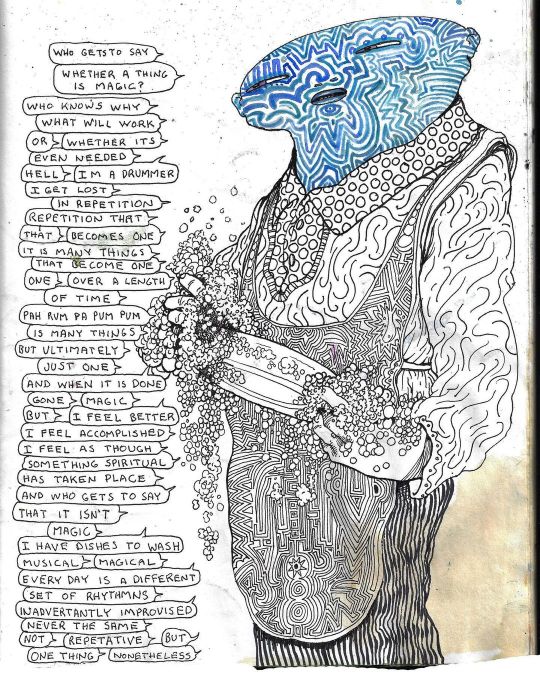 WHO GETS TO SAY
WHETHER A THING
IS MAGIC?
WHO KNOWS WHY
WHAT WILL WORK
OR WHETHER ITS
EVEN NEEDED
HELL I'M A DRUMMER
I GET LOST
IN REPETITION
REPETITION THAT
THAT BECOMES ONE
IT IS MANY THINGS
THAT BECOME ONE
ONE OVER A LENGTH
OF TIME
PAH RUM PA PUM PUM
IS MANY THINGS
BUT ULTIMATELY
JUST ONE
AND WHEN IT IS DONE
GONE MAGIC
BUT I FEEL BETTER
I FEEL ACCOMPLISHED
I FEEL AS THOUGH
SOMETHING SPIRITUAL
HAS TAKEN PLACE
AND WHO GETS TO SAY
THAT IT ISN'T
MAGIC
I HAVE DISHES TO WASH
MUSICAL MAGICAL
EVERY DAY IS A DIFFERENT
SET OF RHYTHMNS
INADVERTANTLY IMPROVISED
NEVER THE SAME
NOT REPETATIVE BUT
ONE THING NONETHELESS